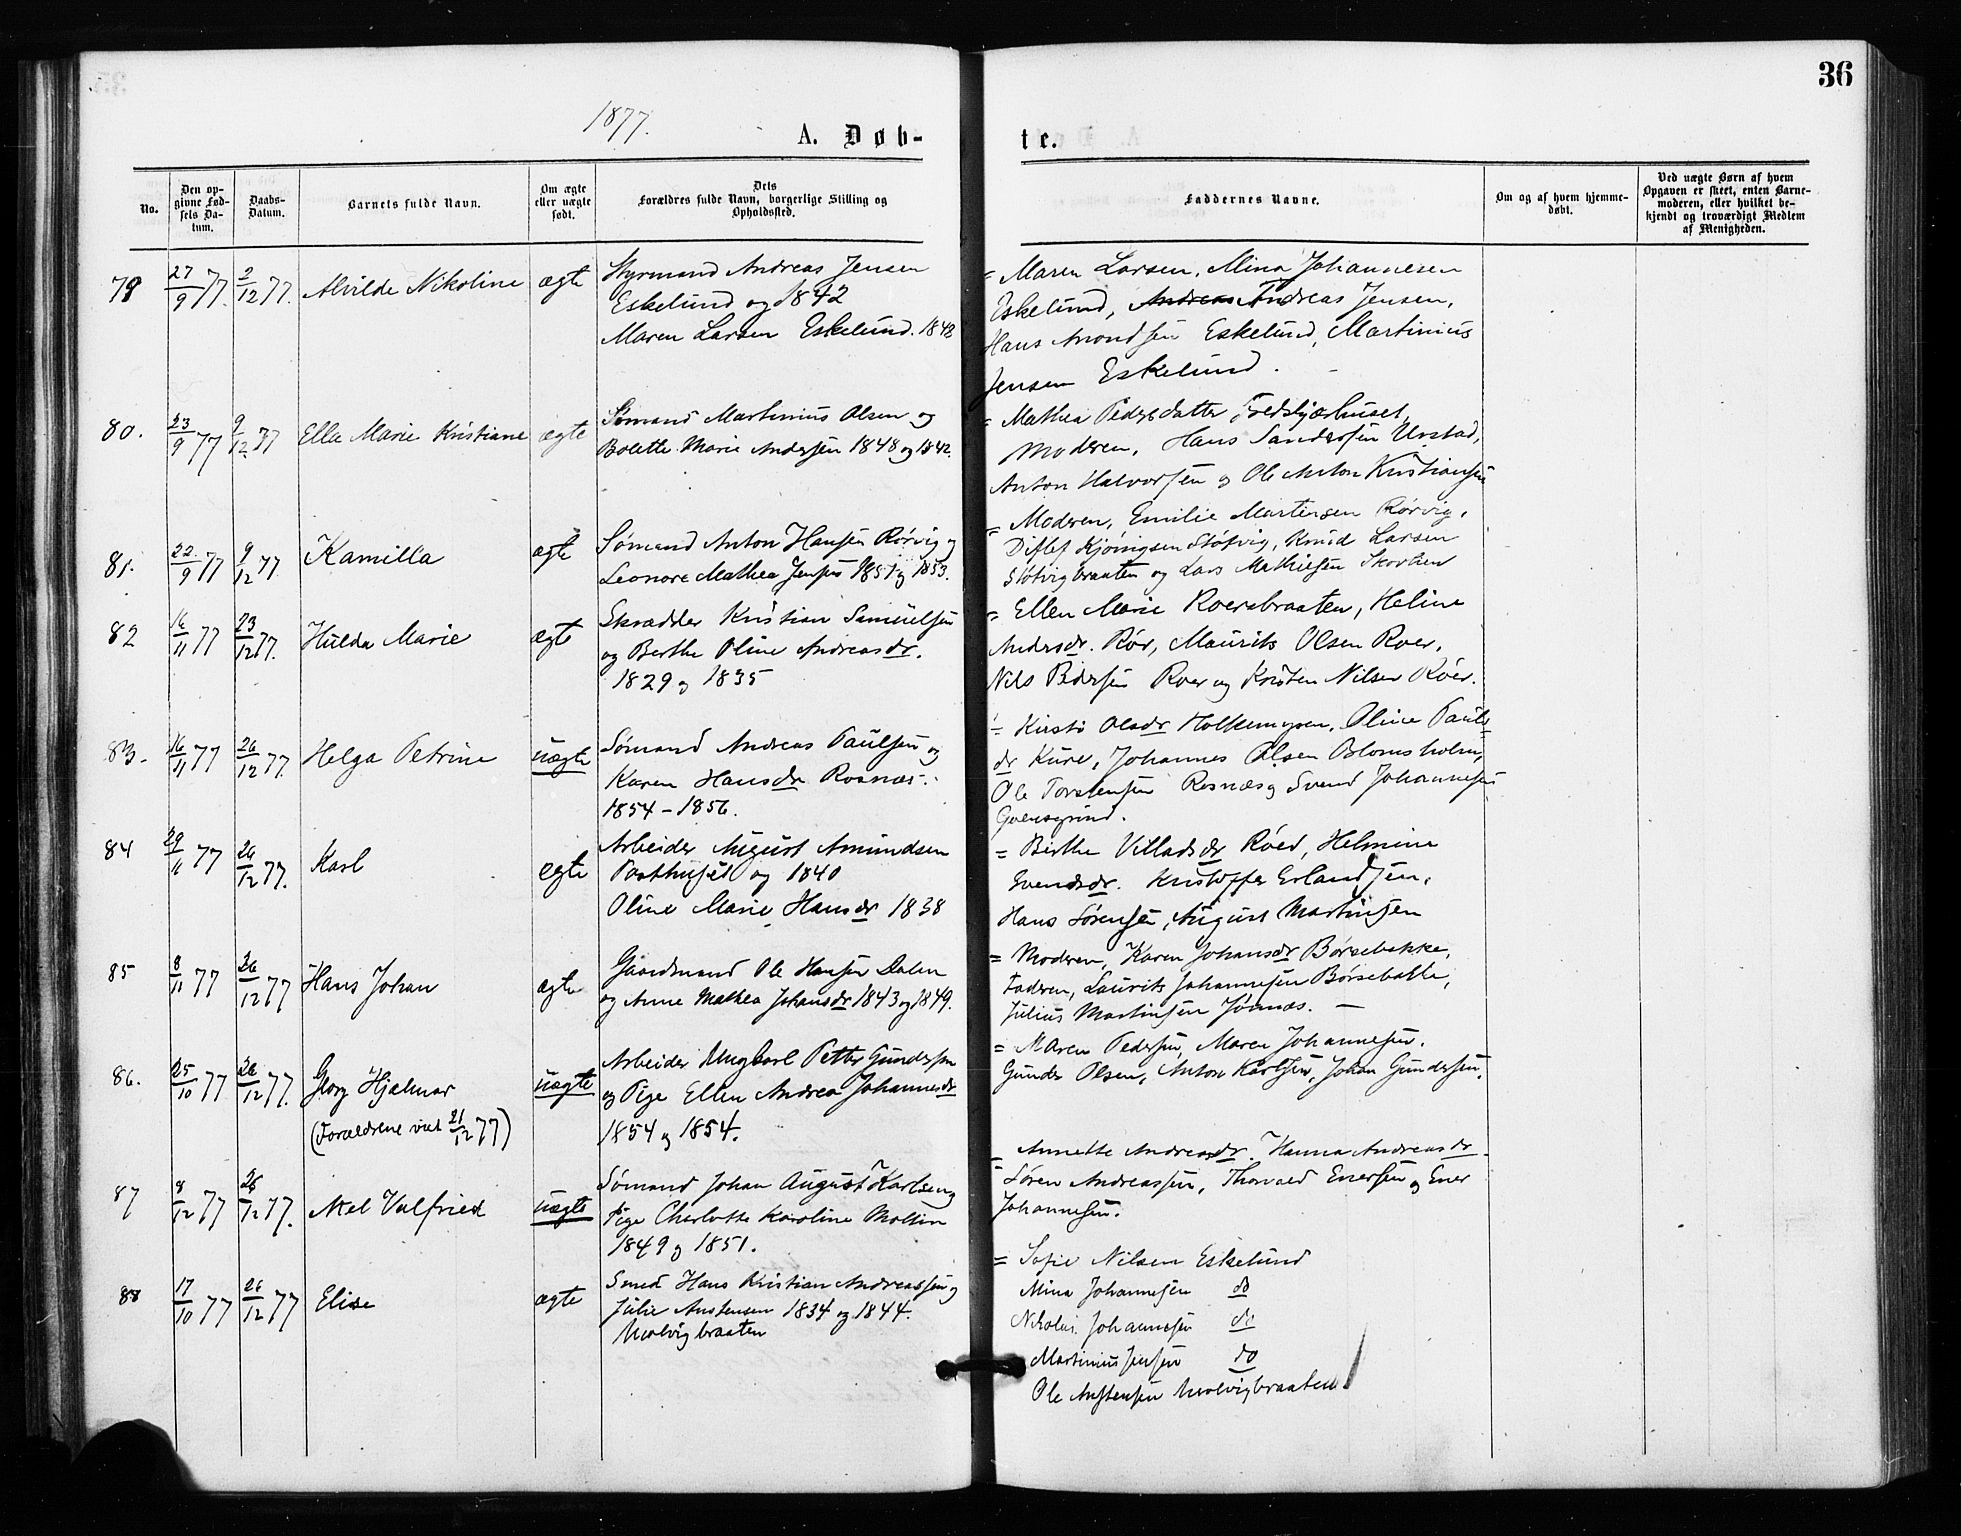 36
1877.
A. Døb-
te.
No.
Den op-
givne Fød-
sels Da-
tum.
Daabs-
Datum.
Barnets fulde Navn.
Om ægte
eller uægte
født.
Dets
Forældres fulde Navn, borgerlige Stilling og
Opholdssted.
Faddernes Navne.
Om og af hvem hjemme-
døbt.
Ved uægte Børn af hvem
Opgaven er skeet, enten Barne-
moderen, eller hvilket be-
kjendt og troværdigt Medlem
af Menigheden.
79 27/9 77. 2/12 77. Alvilde Nikoline ægte
Styrmand Andreas Jensen
Eskelund og 1842
Maren Larsen Eskelund. 1848
= Maren Larsen, Mina Johannesen
Eskelund, Andreas Andreas Jensen,
Hans Amondsen Eskelund, Martinius
Jensen Eskelund.
80. 23/9 77 9/12 77 Ella Marie Kristiane ægte
Sømand Martinius Olsen og
Bolette Marie Andersen 1848 og 1842.
= Mathea Pedersdatter
Moderen, Hans Sandersen Urstad,
Anton Halvorsen og Ole Anton Kristiansen
81. 22/9 77 9/12 77 Kamilla ægte
Sømand Anton Hansen Rørvig og
Leonore Mathea Jensen 1851 og 1853.
= Moderen, Emilie Martinsen Rørvig,
Ditlef Støtvig, Knud Larsen
Støtvigbraaten og Lars Mathiesen
82 16/11 77 23/12 77. Hulda Marie ægte
Skrædder Kristian Samuelsen
og Berthe Oline Andreasdr.
1829 og 1835
= Ellen Marie Roersbraaten, Heline
Andersdr. Rör, Maurits Olsen Roer,
Nils Pedersen Roer og Kristen Nilsen Röer.
83. 16/11 77 26/12 77. Helga Petrine uægte
Sømand Andreas Paulsen og
Karen Hansdr Rosnæs
1854 - 1856.
= Kirsti Olsdr Holkemyren, Oline Pauls
dr Kure, Johannes Olsen Blomsholm,
Ole Torstensen Rosnæs og Svend Johannesen
84 29/11 77 26/12 77. Karl ægte
Arbeider August Amundsen
Posthuset og 1840
Oline Marie Hansdr 1838
= Birthe Villadsdr Röed, Helmine
Svendsdr. Kristoffer Erlandsen,
Hans Sörensen, August Martinsen
85 8/11 77 26/12 77 Hans Johan ægte
Gaardmand Ole Hansen Dalen
og Anne Mathea Johansdr 1843 og 1849.
= Moderen, Karen Johansdr Børsebakke,
Faderen, Laurits Johannesen Børsebakke,
Julius Martinsen
86. 25/10 77 26/12 77. Georg Hjalmar uægte
(Forældrene viet 21/12 77)
Arbeider Ungkarl Petter Gundersen
og Pige Ellen Andrea Johannesdr
1854 og 1854.
= Maren Pedersen, Maren Johannesen.
Gunder Olsen, Anton Karlsen, Johan Gundersen.
87 8/12 77 26/12 77. Axel Valfried uægte
Sømand Johan August Karlsen og
Pige Charlotte Karoline Moltin
1849 og 1851.
= Annette Andreasdr. Hanna Andreasdr
Sören Andreassen, Thorvald Enersen og Ener
Johannesen.
88 17/10 77 26/12 77 Elise ægte
Smed Hans Kristian Andreassen og
Julie Anstensen 1834 og 1844.
= Sofie Nilsen Eskelund
Mina Johannesen do
Nikolai Johannesen do
Martinius Jensen do
Ole Anstensen